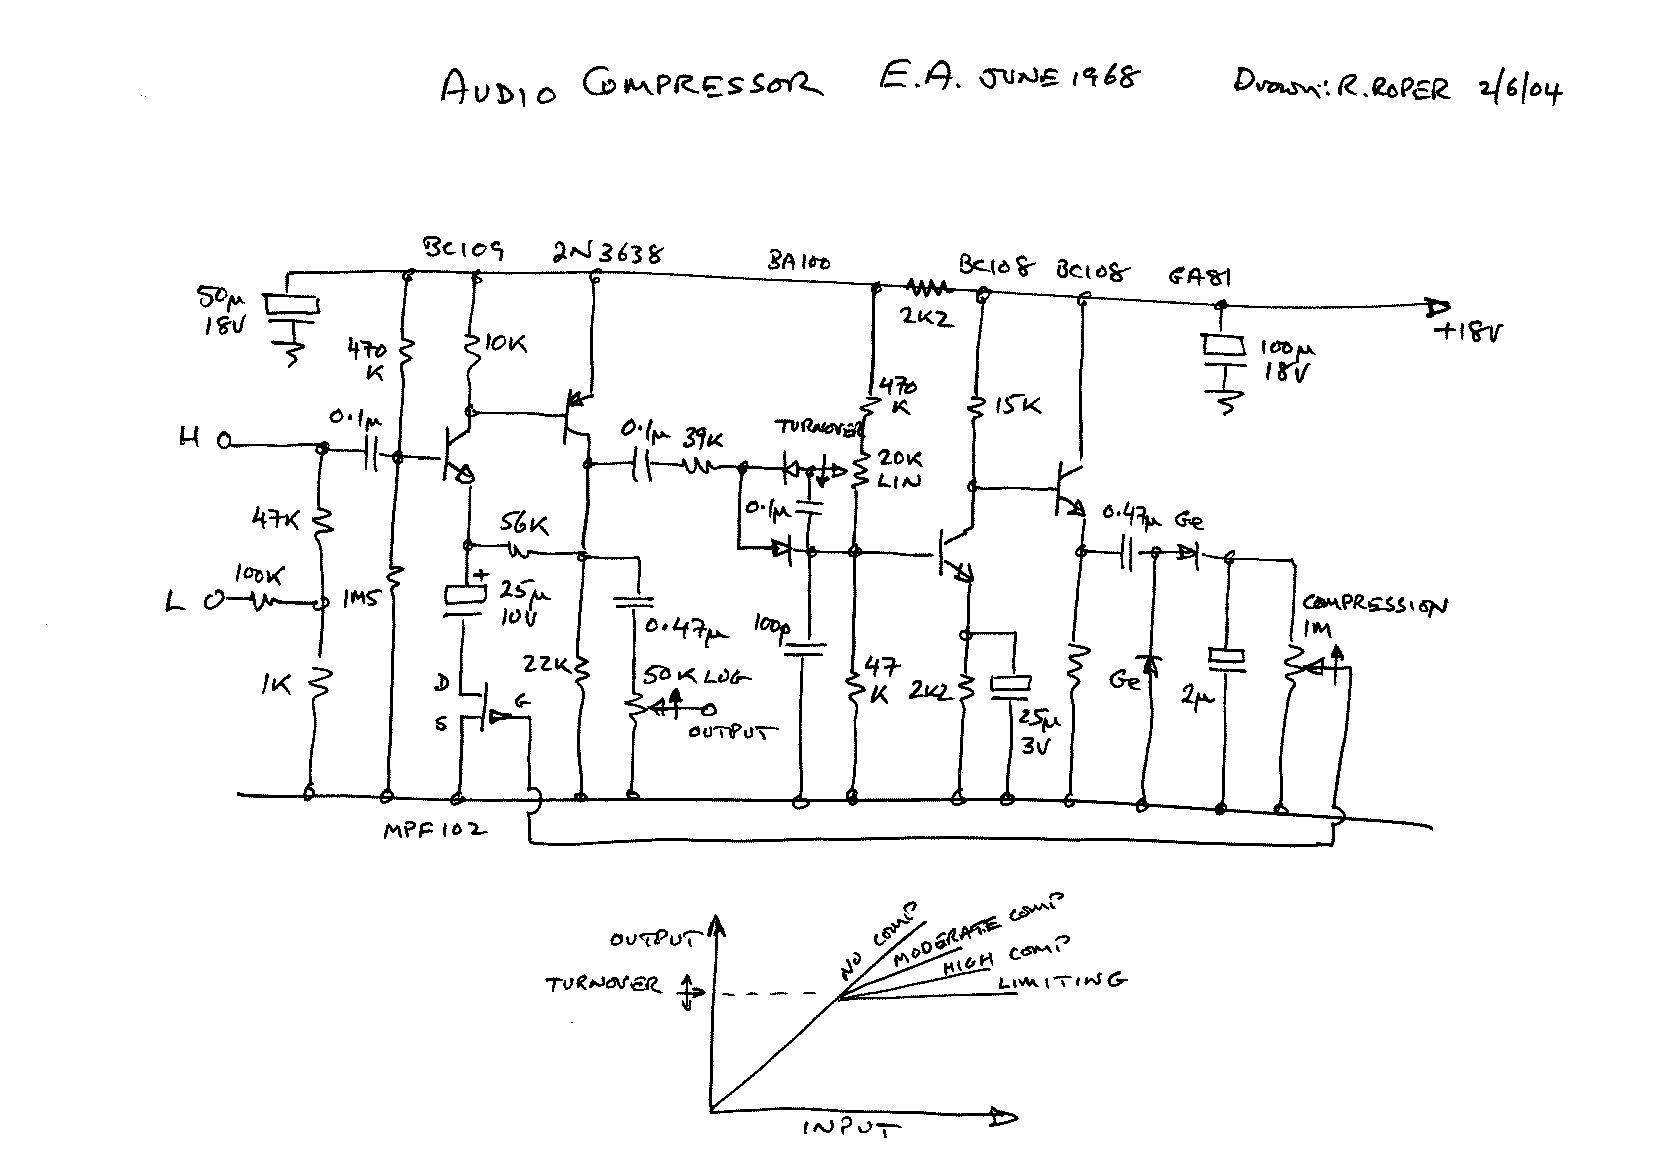 AUDIO COMPRESSOR E.A. JUNE 1968 Drawn: R. ROPER 2/6/04
BC109 2N3638 BA100 BC108 BC108 GA81
50μ
18V
2K2
+18V
470
K
10K
100μ
18V
470
K
15K
H
0.1μ
0.1μ
39K
TURNOVER
20K
LIN
47K
56K
0.1μ
0.47μ
Ge
L
100K
1M5
+
25μ
10V
0.47μ
100p
COMPRESSION
1M
1K
22K
50K LOG
47
K
2K2
Ge
2μ
D
G
S
OUTPUT
25μ
3V
MPF102
OUTPUT
TURNOVER
NO COMP
MODERATE COMP
HIGH COMP
LIMITING
INPUT